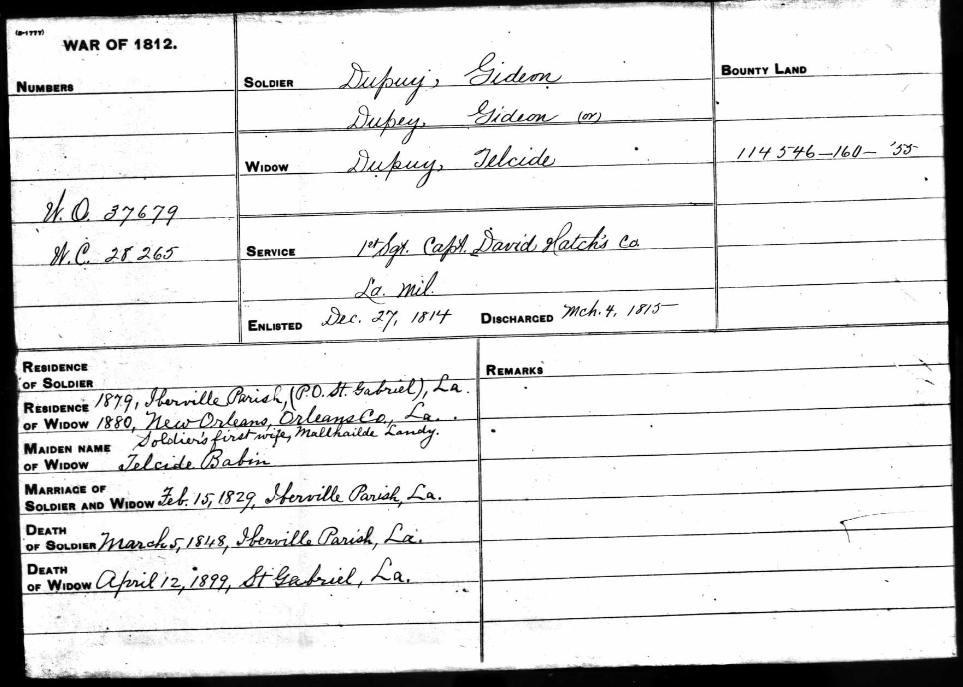 (3-1777)
WAR OF 1812.
NUMBERS
W.O. 37679
W.C. 28265
SOLDIER Dupuy, Gideon
Dupey, Gideon (or)
WIDOW Dupuy, Telcide
SERVICE 1st Sgt. Capt. David Hatch's Co
La. Mil.
ENLISTED Dec. 27, 1814 DISCHARGED Mch. 4, 1815
BOUNTY LAND
114546-160-'55
RESIDENCE
OF SOLDIER
RESIDENCE 1879, Iberville Parish, (P.O. St. Gabriel), La.
OF WIDOW 1880, New Orleans, Orleans Co., La.
Soldier's first wife, Malthailde Landy.
MAIDEN NAME
OF WIDOW Telcide Babin
MARRIAGE OF
SOLDIER AND WIDOW Feb. 15, 1829, Iberville Parish, La.
DEATH
OF SOLDIER March 5, 1848, Iberville Parish, La.
DEATH
OF WIDOW April 12, 1899, St Gabriel, La.
REMARKS